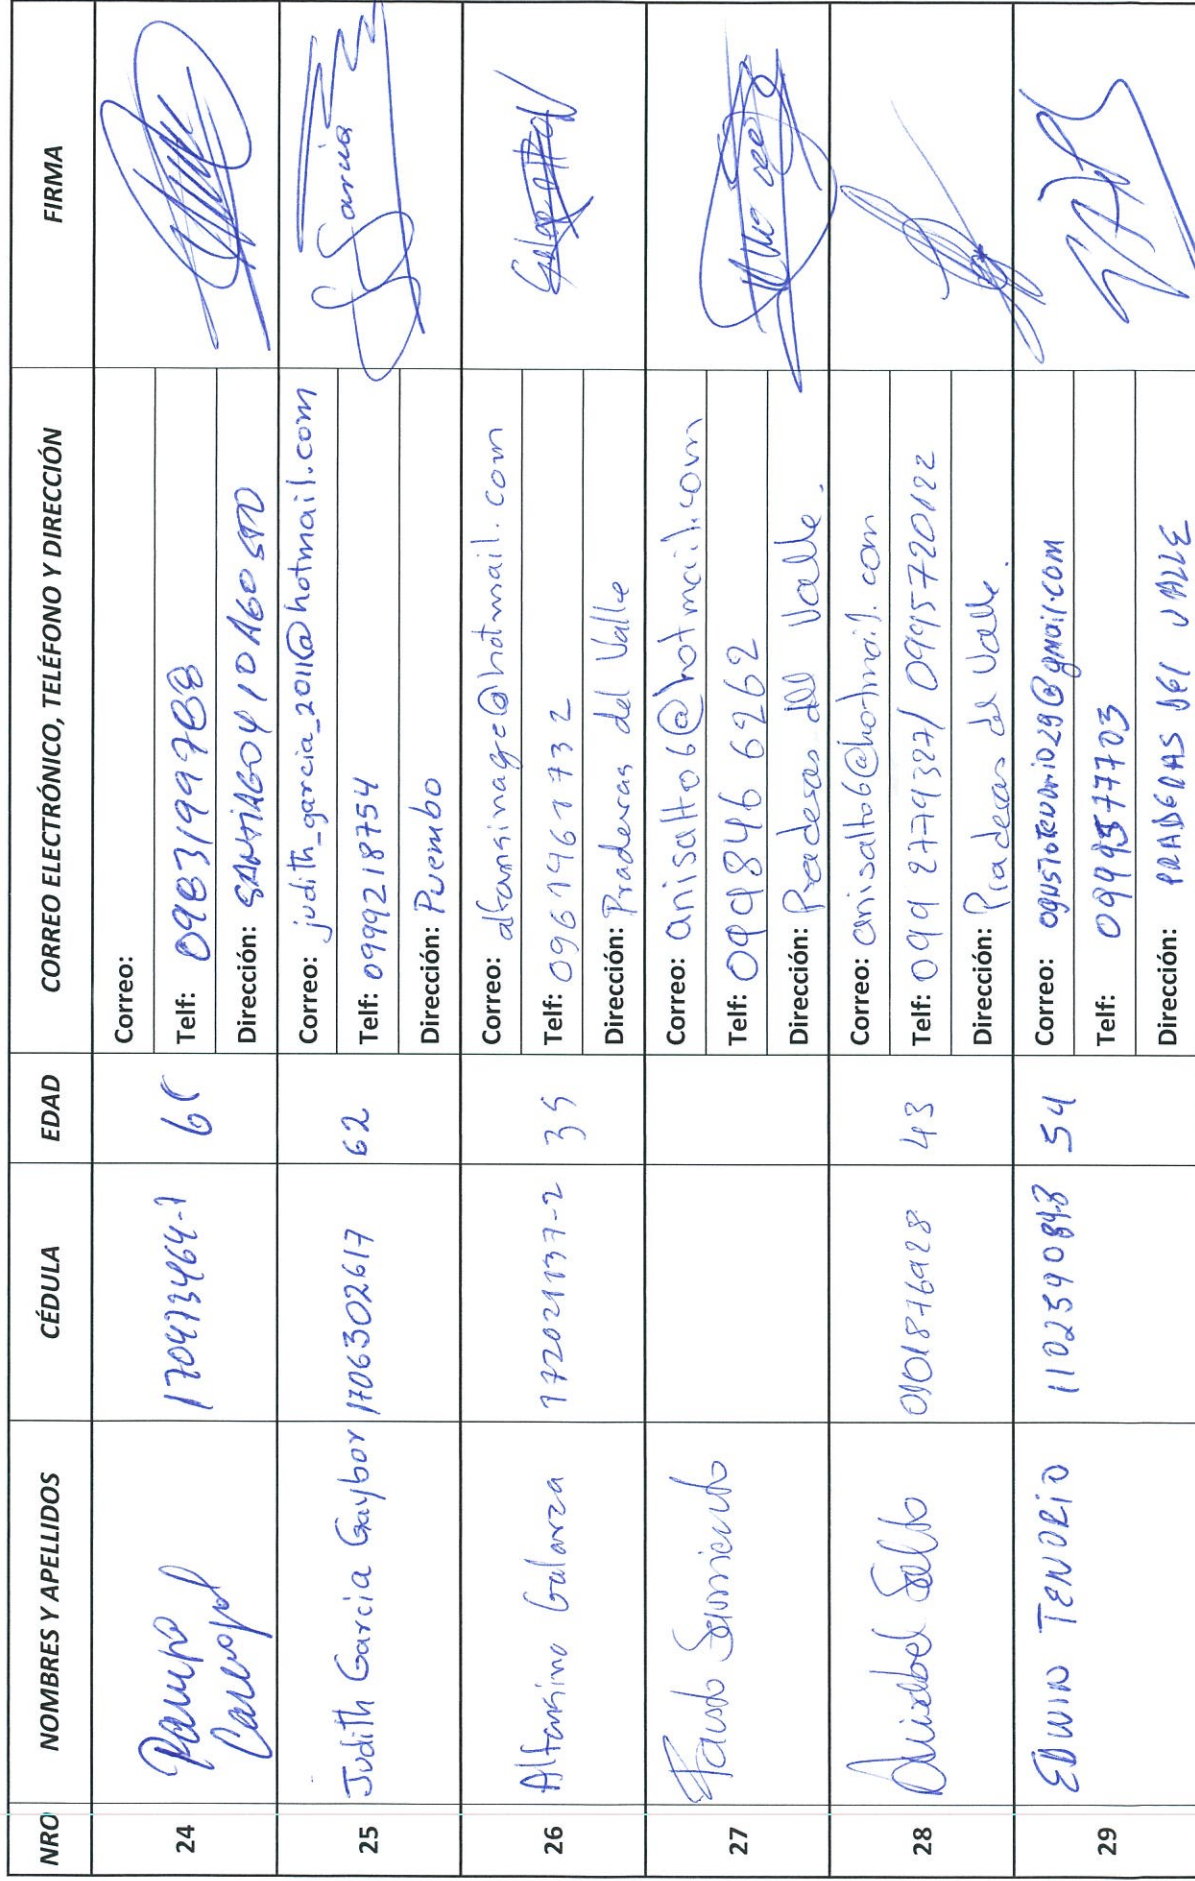 NRO NOMBRES Y APELLIDOS CÉDULA EDAD CORREO ELECTRÓNICO, TELÉFONO Y DIRECCIÓN FIRMA
24 170473464-1 Correo:
Telf: 0983199788
Dirección: SANTIAGO Y 10 AGOSTO
25 Judith Garcia Gaybor 1706302617 62 Correo: judith_garcia_2011@hotmail.com
Telf: 0999218754
Dirección: Puembo
Garcia
26 Alfonsina Galarza 172021137-2 35 Correo: alfonsinage@hotmail.com
Telf: 0961961732
Dirección: Praderas del Valle
27 Fausto Sarmiento Correo: anisalto6@hotmail.com
Telf: 0998466262
Dirección: Praderas del Valle.
28 Anabel Salto 0101876928 43 Correo: anisalto6@hotmail.com
Telf: 0992779327/ 0995720122
Dirección: Praderas del Valle.
29 EDWIN TENORIO 1102590843 54 Correo: ogustotenorio29@gmail.com
Telf: 0999577703
Dirección: PRADERAS DEL VALLE